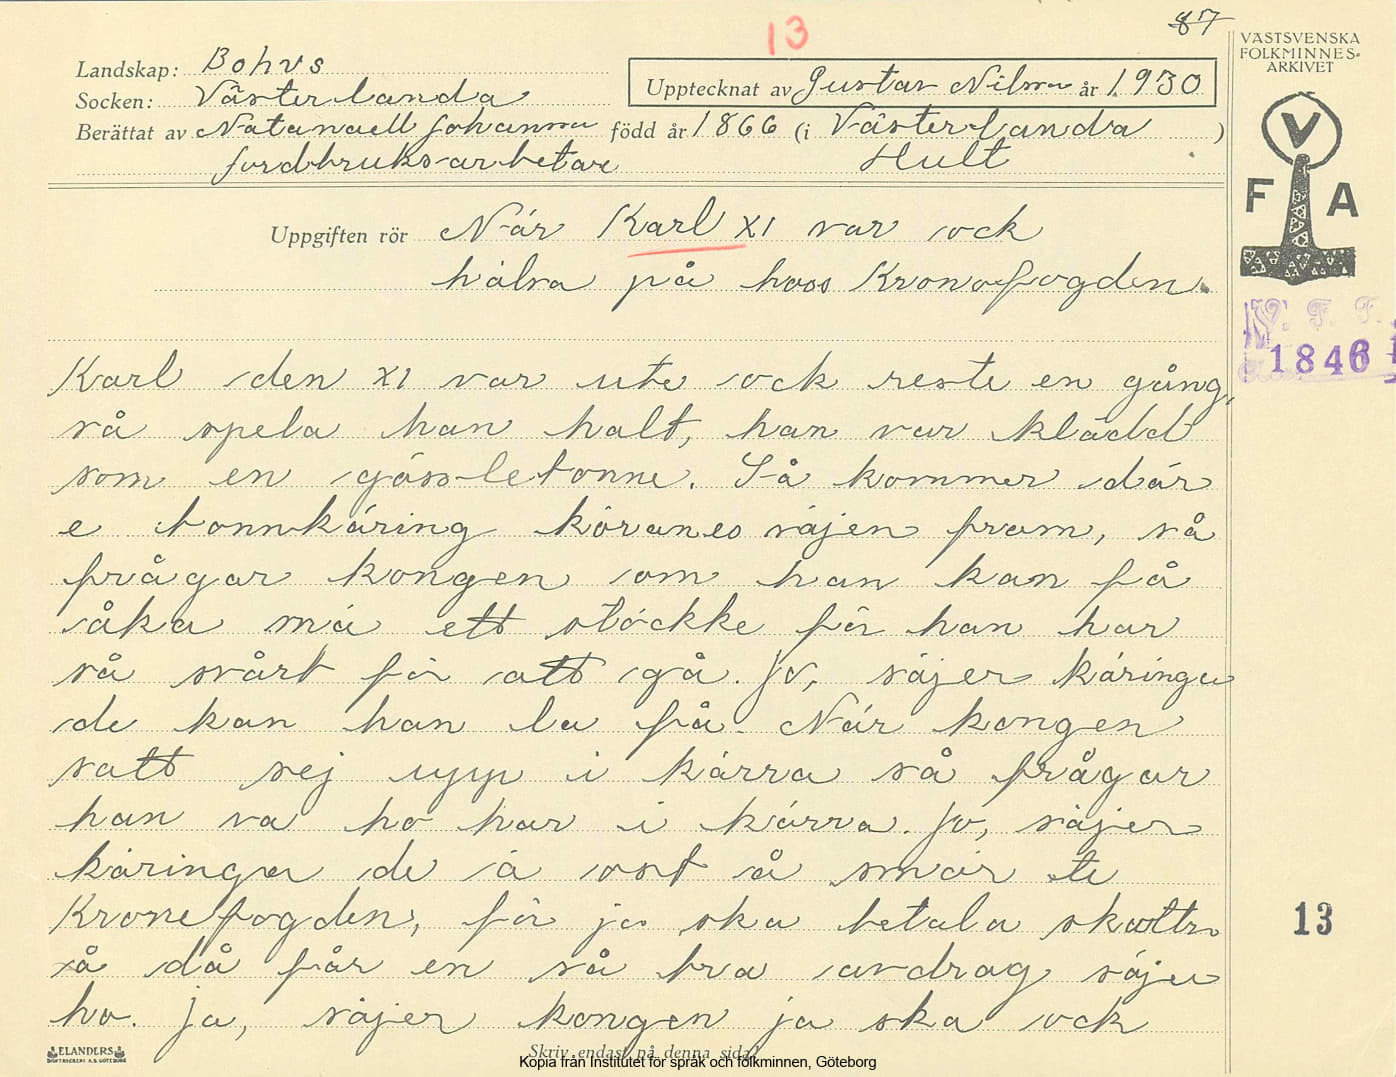 13
87
Landskap: Bohus
Socken: Västerlanda
Upptecknat av Gustav Nilson år 1930
Berättat av Natanaell Johanson född år 1866 (i Västerlanda )
Jordbruksarbetare Hult
VÄSTSVENSKA
FOLKMINNES-
ARKIVET
V
F A
Uppgiften rör När Karl XI var ock
hälsa på hoos Kronofogden.
V. F. F.
1846
Karl den XI var ute ock reste en gång,
så spela han halt, han var klädd
som en gässletonne. Så kommer där
e bonnkäring köranes väjen fram, så
frågar kongen om han kan få
åka mä ett stöckke för han har
så svårt för att gå. Jo, säjer käringa
de kan han la få. När kongen
satt sej upp i kärra så frågar
han va ho har i kärra. Jo, säjer
käringa de ä ost å smör te
Kronefogden, för ja ska betala skatten
å då får en så bra avdrag säjer
ho. Ja, säjer kongen ja ska ock
13
ELANDERS
BOKTRYCKERI A.B. GÖTEBORG
Skriv endast på denna sida!
Kopia från Institutet för språk och folkminnen, Göteborg